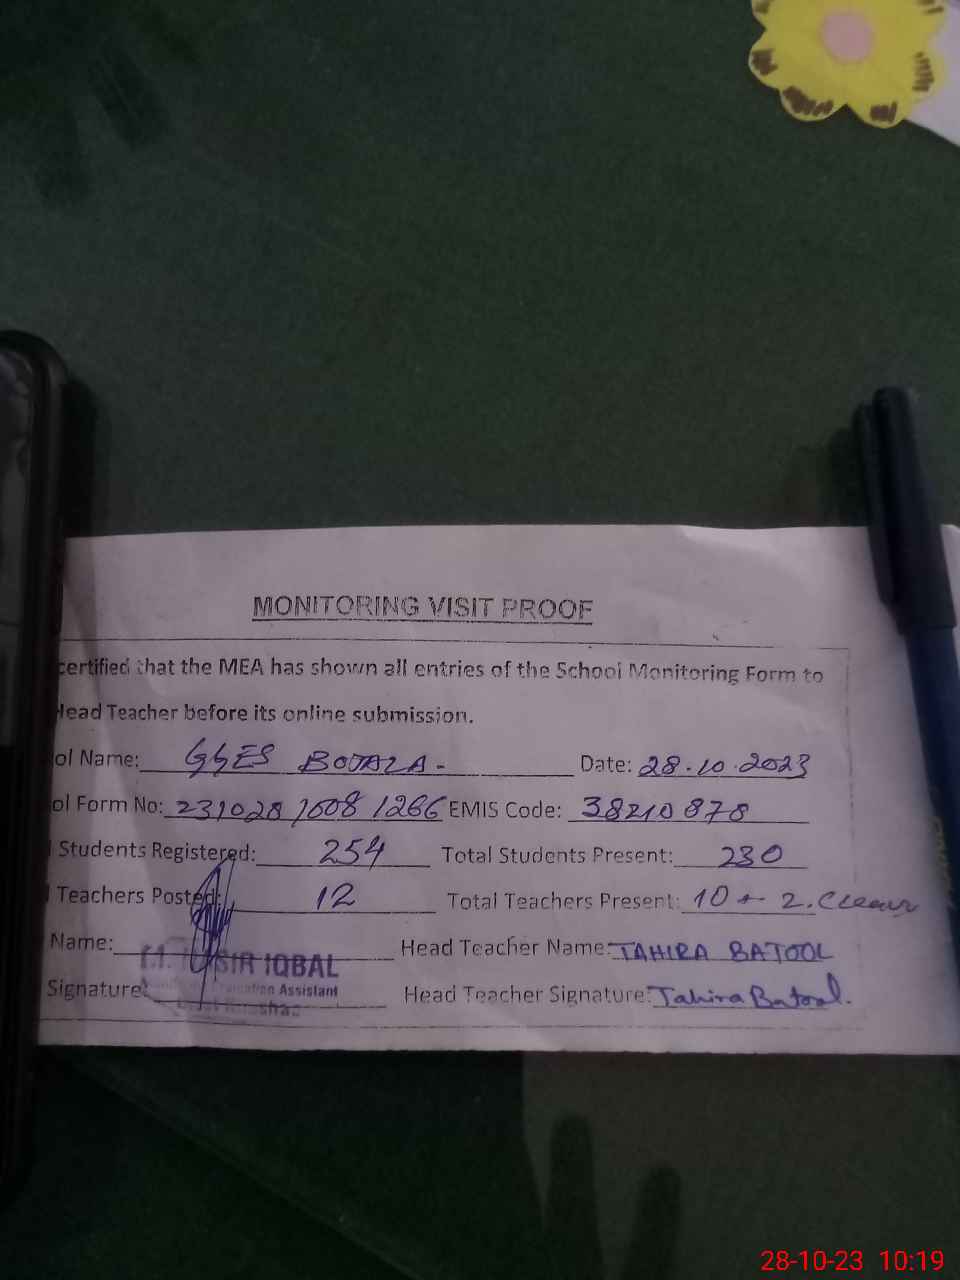 MONITORING VISIT PROOF
certified that the MEA has shown all entries of the School Monitoring Form to
Head Teacher before its online submission.
ol Name: GGES BOTALA - Date: 28.10.2023
ol Form No: 231028 1608 1266 EMIS Code: 38210878
Students Registered: 254 Total Students Present: 230
Teachers Posted: 12 Total Teachers Present: 10 + 2.
Name: IQBAL Head Teacher Name: TAHIRA BATOOL
Signature: Assistant Head Teacher Signature: Tahira Batool.
28-10-23 10:19